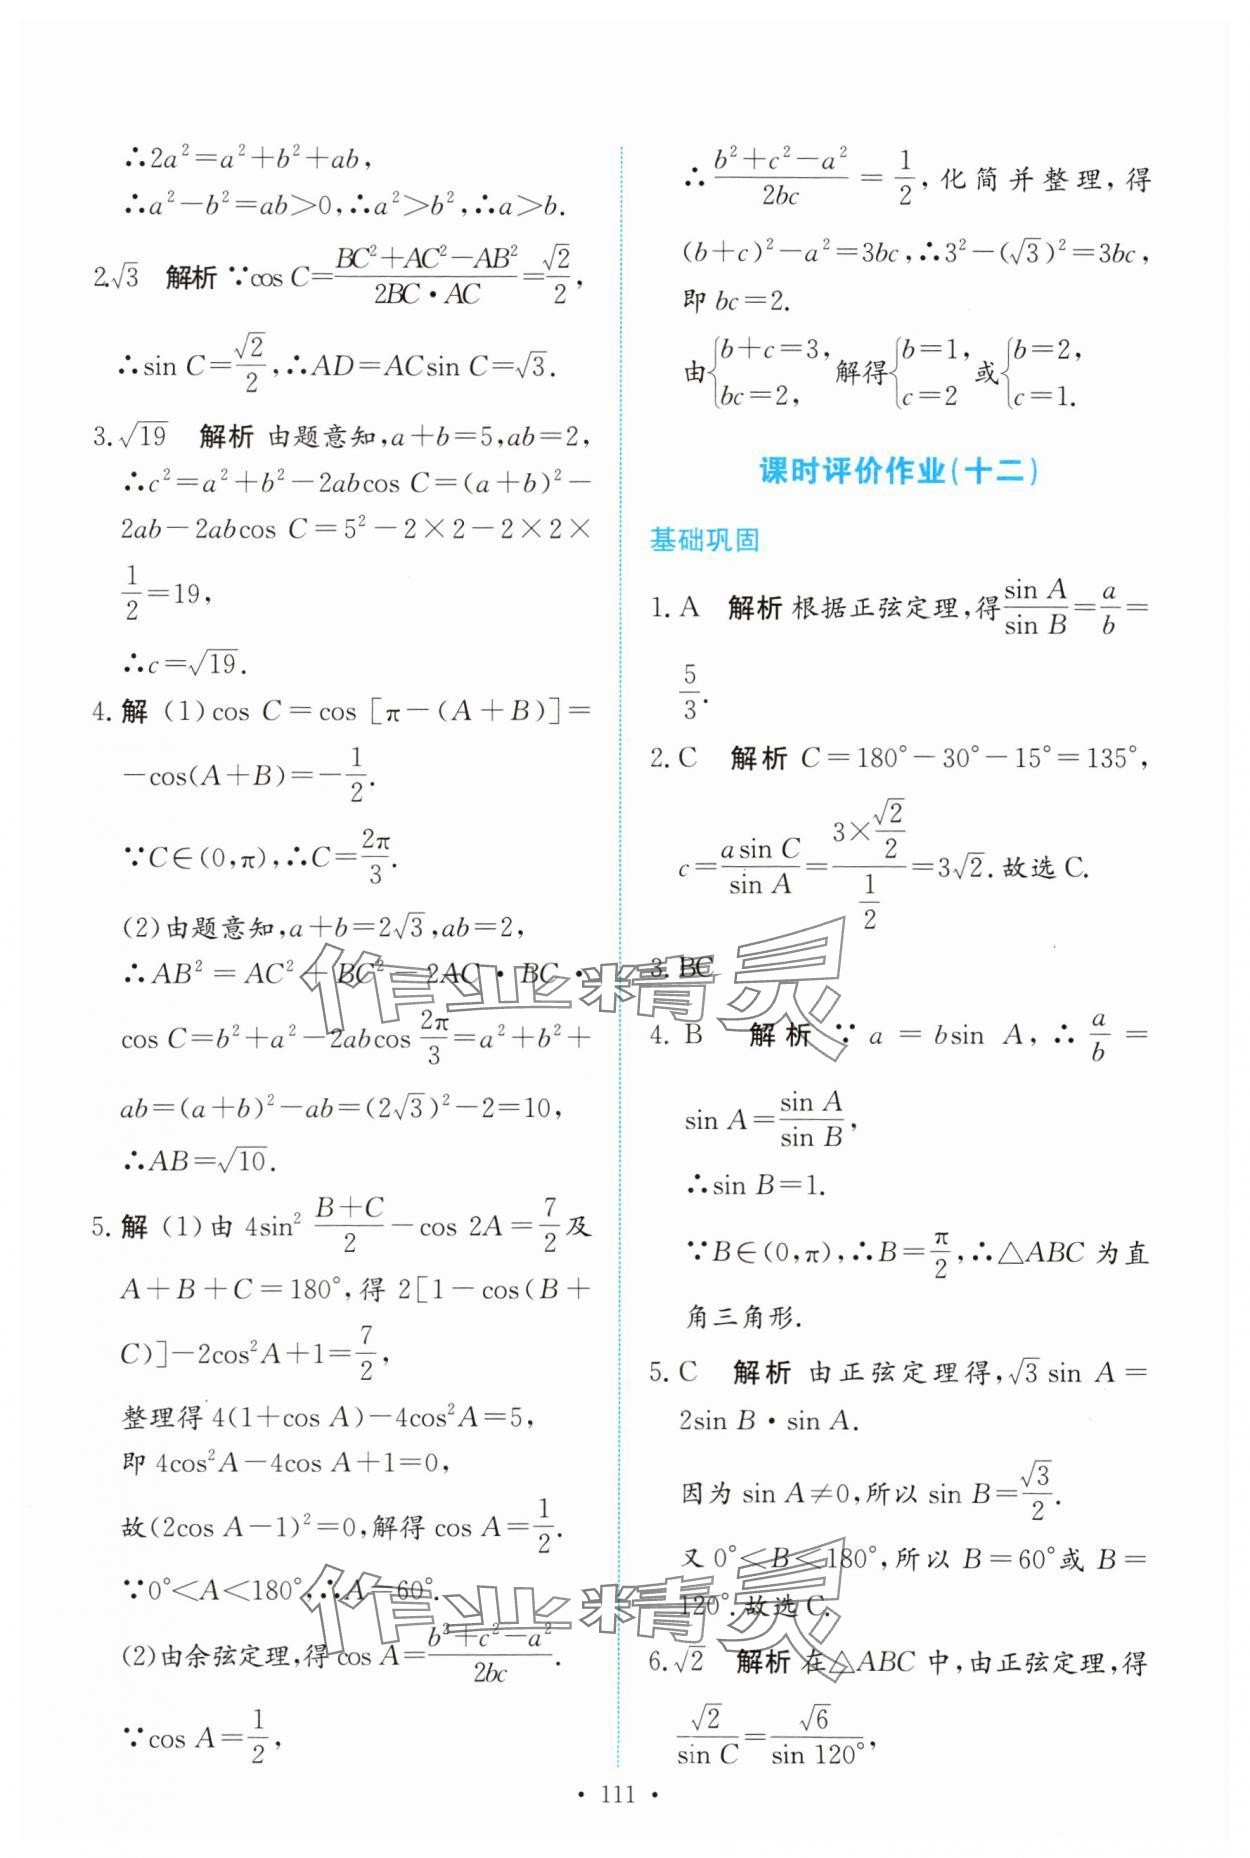 ∴2a²=a²+b²+ab,
∴a²-b²=ab>0,∴a²>b²,∴a>b.
2.√3 解析 ∵cos C=(BC²+AC²-AB²)/(2BC·AC)=√2/2,
∴sin C=√2/2,∴AD=ACsin C=√3.
3.√19 解析 由题意知,a+b=5,ab=2,
∴c²=a²+b²-2abcos C=(a+b)²-
2ab-2abcos C=5²-2×2-2×2×
1/2=19,
∴c=√19.
4.解 (1)cos C=cos [π-(A+B)]=
-cos(A+B)=-1/2.
∵C∈(0,π),∴C=2π/3.
(2)由题意知,a+b=2√3,ab=2,
∴AB²=AC²+BC²-2AC·BC·
cos C=b²+a²-2abcos 2π/3=a²+b²+
ab=(a+b)²-ab=(2√3)²-2=10,
∴AB=√10.
5.解 (1)由 4sin² (B+C)/2-cos 2A=7/2及
A+B+C=180°,得 2[1-cos(B+
C)]-2cos²A+1=7/2,
整理得 4(1+cos A)-4cos²A=5,
即 4cos²A-4cos A+1=0,
故(2cos A-1)²=0,解得 cos A=1/2.
∵0°<A<180°,∴A=60°.
(2)由余弦定理,得 cos A=(b²+c²-a²)/(2bc).
∵cos A=1/2,
∴(b²+c²-a²)/(2bc)=1/2,化简并整理,得
(b+c)²-a²=3bc,∴3²-(√3)²=3bc,
即 bc=2.
由{b+c=3, bc=2, 解得{b=1, c=2 或{b=2, c=1.
课时评价作业(十二)
基础巩固
1.A 解析 根据正弦定理,得sin A/sin B=a/b=
5/3.
2.C 解析 C=180°-30°-15°=135°,
c=(asin C)/(sin A)=(3×√2/2)/(1/2)=3√2.故选C.
3.BC
4.B 解析 ∵a=bsin A,∴a/b=
sin A=sin A/sin B,
∴sin B=1.
∵B∈(0,π),∴B=π/2,∴△ABC 为直
角三角形.
5.C 解析 由正弦定理得,√3sin A=
2sin B·sin A.
因为 sin A≠0,所以 sin B=√3/2.
又 0°<B<180°,所以 B=60°或 B=
120°.故选C.
6.√2 解析 在△ABC 中,由正弦定理,得
√2/sin C=√6/sin 120°,
·111·
作业精灵
作业精灵